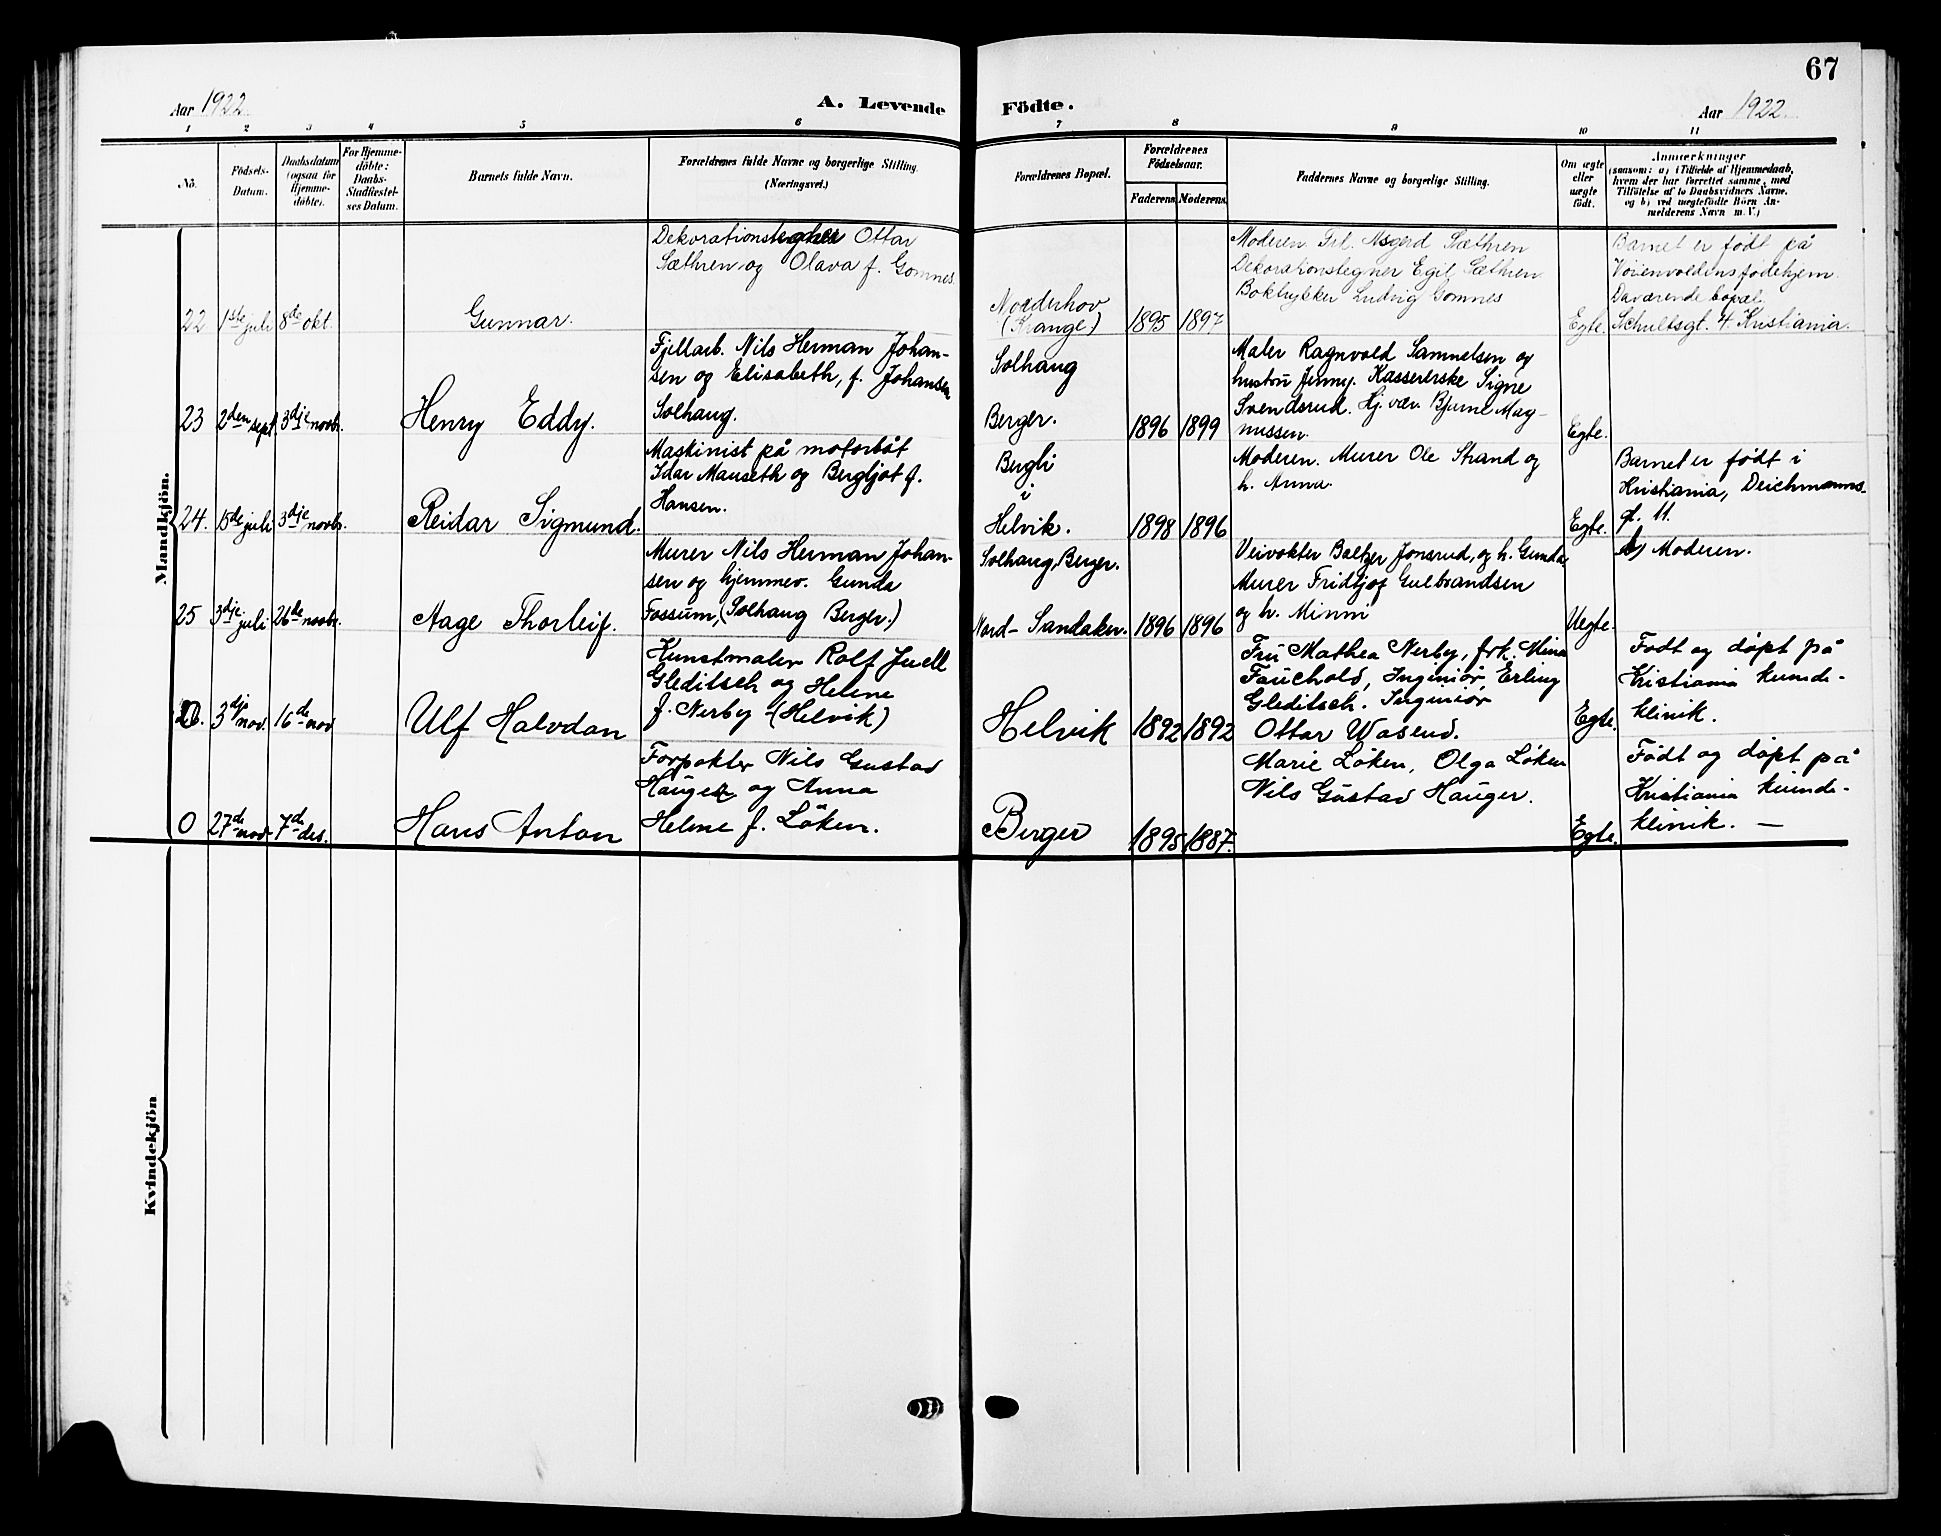 67
Aar 1922.
A. Levende Födte.
Aar 1922.
1 2 3 4 5 6 7 8 9 10 11
Nö.
Födsels-
Datum.
Daabsdatum
(ogsaa for
Hjemme-
döbte).
For Hjemme-
döbte:
Daabs-
Stadfæstel-
ses Datum.
Barnets fulde Navn.
Forældrenes fulde Navne og borgerlige Stilling
(Næringsvei.)
Forældrenes Bopæl.
Forældrenes
Födselsaar.
Faderens Moderens
Faddernes Navne og borgerlige Stilling.
Om ægte
eller
uægte
födt.
Anmærkninger
(saasom: a) i Tilfælde af Hjemmedaab,
hvem der har forrettet samme, med
Tilföielse af to Daabsvidners Navne,
og b) ved uægtefödte Börn An-
melderens Navn m. V.)
Mandkjön.
22 1ste juli 8de okt.
Gunnar.
Dekorationstegner Ottar
Sæthren og Olava f. Gomnes.
Norderhov
(Krange)
1895 1897
Moderen. Frk. Aasgerd Sæthren
Dekorationstegner Egil Sæthren
Boktrykker Ludvig Gomnes
Egte.
Barnet er født på
Vøienvoldens fødehjem.
Daværende bopæl
Schultsgt. 4 Kristiania.
23 2den sept. 3dje novbr.
Henry Eddy.
Fjellarb. Nils Herman Johan-
sen og Elisabeth, f. Johansen
Solhaug.
Solhaug
Berger.
1896 1899
Maler Ragnvald Samuelsen og
hustru Jenny. Kassererske Signe
Svendsrud. Hj. vær. Bjarne Mag-
nussen.
Egte.
24. 15de juli 3dje novbr.
Reidar Sigmund.
Maskinist på motorbåt
Idar Mauseth og Bergljot f.
Hansen.
Bergli
i
Helvik.
1898 1896
Moderen. Murer Ole Strand og
h. Anna.
Egte.
Barnet er født i
Kristiania, Deichmanns-
gt. 11.
25 3dje juli 26de novbr.
Aage Thorleif.
Murer Nils Herman Johan-
sen og hjemmev. Gunda
Fossum, (Solhaug Berger.)
Solhaug, Berger.
Nord-Sandaker.
1896 1896
Veivokter Baltzer Jonsrud, og h. Gunda
Murer Fridtjof Gulbrandsen
og h. Minni
Uegte.
b) Moderen.
0 3dje nov. 16de nov
Ulf Halvdan
Kunstmaler Rolf Juell
Gleditsch og Helene
f. Nerby - (Helvik)
Helvik
1892 1892
Fru Mathea Nerby, frk. Mina
Fauchald, Ingeniør Erling
Gleditsch. Ingeniør
Ottar Wasend.
Egte.
Født og døpt på
Kristiania kvinde-
klinik.
0 27de nov. 7de des.
Hans Anton
Forpakter Nils Gustav
Hauger og Anna
Helene f. Løken.
Berger
1895 1887.
Marie Løken, Olga Løken
Nils Gustav Hauger.
Egte.
Født og døpt på
Kristiania kvinde-
klinik. —
Kvindekjön